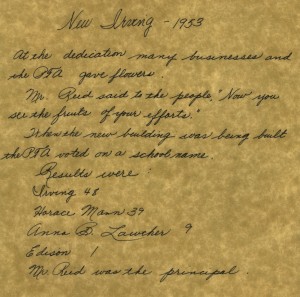 New Irving - 1953
At the dedication many businesses and
the PTA gave flowers.
Mr. Reid said to the people, "Now you
see the fruits of your efforts."
When the new building was being built
the PTA voted on a school name.
Results were:
Irving 48
Horace Mann 39
Anna B. Lawther 9
Edison 1
Mr. Reid was the principal.